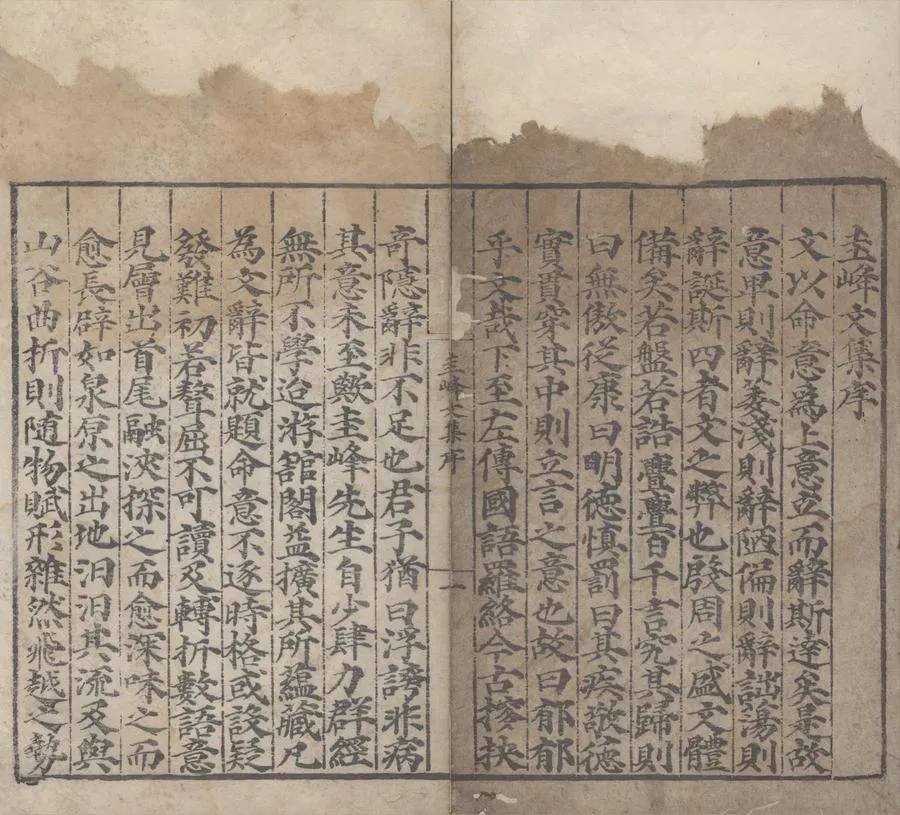 圭峰文集序
文以命意為上意立而辭斯達矣是故
意卑則辭萎淺則辭陋偏則辭詘蕩則
辭誕斯四者文之弊也殷周之盛文體
備矣若盤若誥亹亹百千言究其歸則
曰無傲從康曰明德慎罰曰其疾敬德
實貫穿其中則立言之意也故曰郁郁
乎文哉下至左傳國語羅絡今古摉抉
圭峰文集序
一
奇隱辭非不足也君子猶曰浮誇非病
其意未至歟圭峰先生自少肆力群經
無所不學迨游舘閣益擴其所蘊藏凡
為文辭皆就題命意不逐時格或設疑
發難初若聱屈不可讀及轉折數語意
見層出首尾融浹探之而愈深味之而
愈長辟如泉原之出地汩汩其流及與
山谷曲折則随物賦形雜然飛越之勢